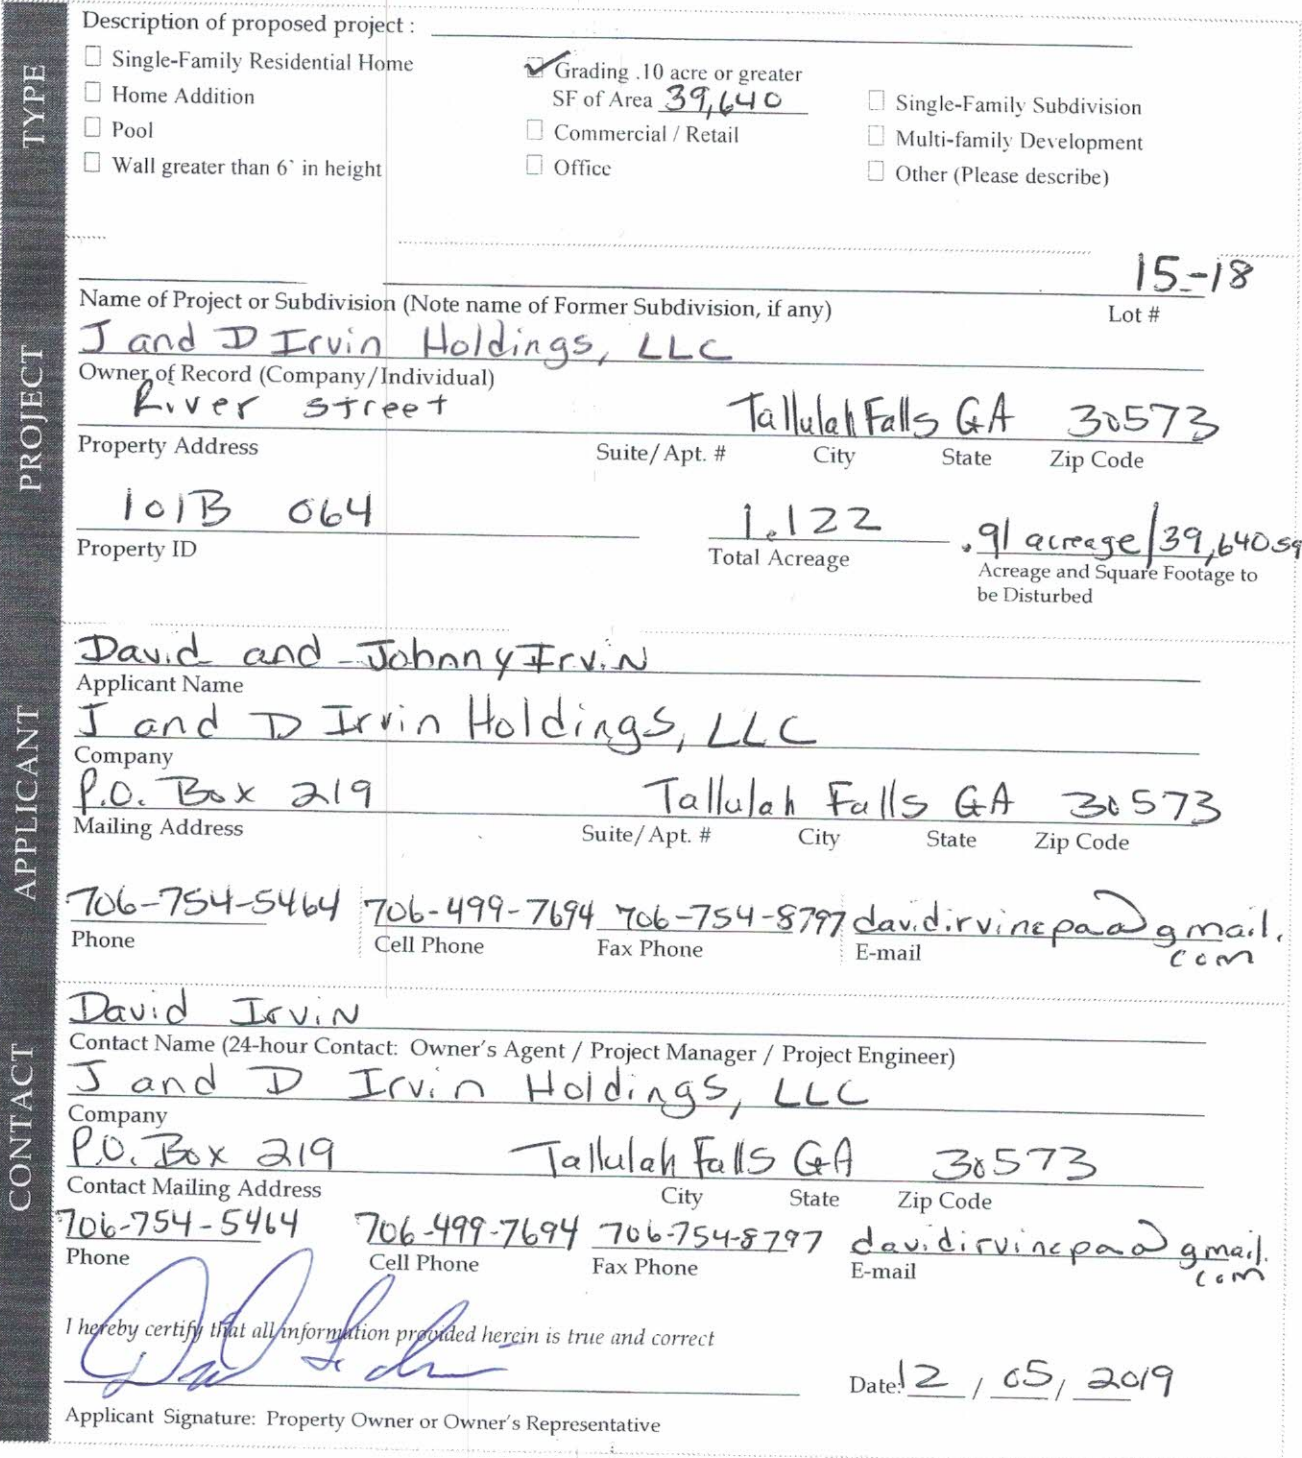 TYPE
Description of proposed project :
Single-Family Residential Home
Home Addition
Pool
Wall greater than 6` in height
Grading .10 acre or greater
SF of Area 39,640
Commercial / Retail
Office
Single-Family Subdivision
Multi-family Development
Other (Please describe)
PROJECT
15-18
Name of Project or Subdivision (Note name of Former Subdivision, if any) Lot #
J and D Irvin Holdings, LLC
Owner of Record (Company/Individual)
River street Tallulah Falls GA 30573
Property Address Suite/Apt. # City State Zip Code
101B 064 1.122 .91 acreage/39,640 sq
Property ID Total Acreage Acreage and Square Footage to
be Disturbed
APPLICANT
David and Johnny Irvin
Applicant Name
J and D Irvin Holdings, LLC
Company
P.O. Box 219 Tallulah Falls GA 30573
Mailing Address Suite/Apt. # City State Zip Code
706-754-5464 706-499-7694 706-754-8797 davidirvincpa@gmail.
com
Phone Cell Phone Fax Phone E-mail
CONTACT
David Irvin
Contact Name (24-hour Contact: Owner's Agent / Project Manager / Project Engineer)
J and D Irvin Holdings, LLC
Company
P.O. Box 219 Tallulah Falls GA 30573
Contact Mailing Address City State Zip Code
706-754-5464 706-499-7694 706-754-8797 davidirvincpa@gmail.
com
Phone Cell Phone Fax Phone E-mail
I hereby certify that all information provided herein is true and correct
Date: 12 / 05 / 2019
Applicant Signature: Property Owner or Owner's Representative